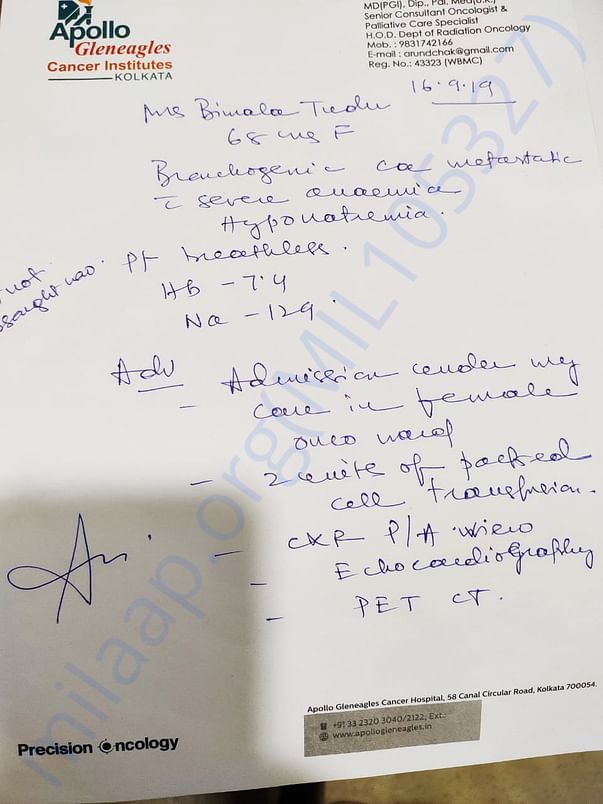 Apollo
Gleneagles
Cancer Institutes
KOLKATA
MD(PGI), Dip., Pal. Med(U.K.)
Senior Consultant Oncologist &
Palliative Care Specialist
H.O.D. Dept of Radiation Oncology
Mob. : 9831742166
E-mail : arundchak@gmail.com
Reg. No.: 43323 (WBMC)
16.9.19
Mrs Bimala Tudu
68 yrs F
Bronchogenic ca metastatic
c severe anaemia
Hyponatremia.
not
Pt breathless.
Hb - 7.4
Na - 129.
Adv
- Admission under my
care in female
onco ward
- 2 units of packed
cell transfusion.
- CXR P/A view
- Echocardiography
- PET CT.
milaap.org(MIL105327)
Apollo Gleneagles Cancer Hospital, 58 Canal Circular Road, Kolkata 700054.
+91 33 2320 3040/2122, Ext.:
www.apollogleneagles.in
Precision Oncology